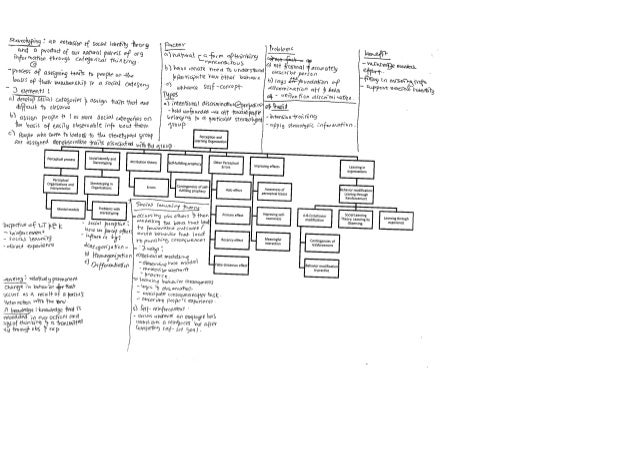 Stereotyping: an extension of social identity theory
and a product of our natural process of org
information through categorical thinking
- process of assigning traits to people on the
basis of their membership to a social category
- 3 elements:
a) develop social categories & assign traits that are
difficult to observe
b) assign people to 1 or more social categories on
the basis of easily observable info about them
c) People who to belong to the stereotyped group
are assigned traits associated with the group
Factor
a) natural - a form of thinking
- nonconscious
b) have innate need to understand
& anticipate how others behave
c) enhance self-concept
Types
a) intentional discrimination @ prejudice
- hold unfounded -ve people
belonging to a particular stereotyped
group
Problems
a) not & accurately
describe person
b) lays foundation of
discrimination
- unintention discrimination
c) avoid
- intensive training
- apply stereotypic information
benefit
- minimize mental
effort
- filling in missing info
- support social identity
Perception and
Learning Organization
Perceptual process
Social Identity and
Stereotyping
Attribution theory
Self-fulfilling prophecy
Other Perceptual
Errors
Improving effects
Learning in
organizations
Perceptual
Organizations and
Interpretation
Stereotyping in
Organizations
Errors
Contingencies of self-
fulfilling prophecy
Halo effect
Awareness of
perceptual biases
Behavior modification:
Learning through
Reinforcement
Mental models
Problems with
stereotyping
Primacy effect
Improving self-
awareness
A-B-C of behavior
modification
Social Learning
Theory: Learning by
Observing
Learning through
experience
Recency effect
Meaningful
interaction
Contingencies of
Reinforcement
False consensus effect
Behavior modification
in practice
Perspective of LT
- reinforcement
- social learning
- direct experience
- Social perception
a) Categorization
b) Homogenization
c) Differentiation
Social learning theory
- observing others & then
modeling the behav that lead
to favourable outcomes &
avoid behavior that lead
to punishing consequences
- 3 ways:
a) Behavioral modeling
- observe role model
- practice
b) Learning behavior consequences
- logic & observation
- anticipate consequences
- observe people's experience
c) Self-reinforcement
- occurs whenever an employee has
control over a reinforcer but after
completing self-set goal
Learning: relatively permanent
change in behavior that
occur as a result of a person's
interaction with the env
knowledge: knowledge that is
embedded in our actions and
ways of thinking & is transmitted
through obs & exp